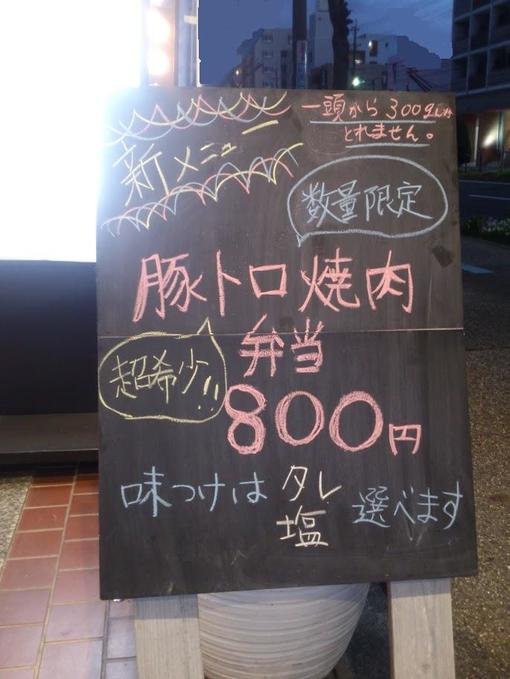 一頭から300gしか
とれません。
新メニュー
数量限定
豚トロ焼肉
弁当
超希少!!
800円
味つけは タレ
塩 選べます